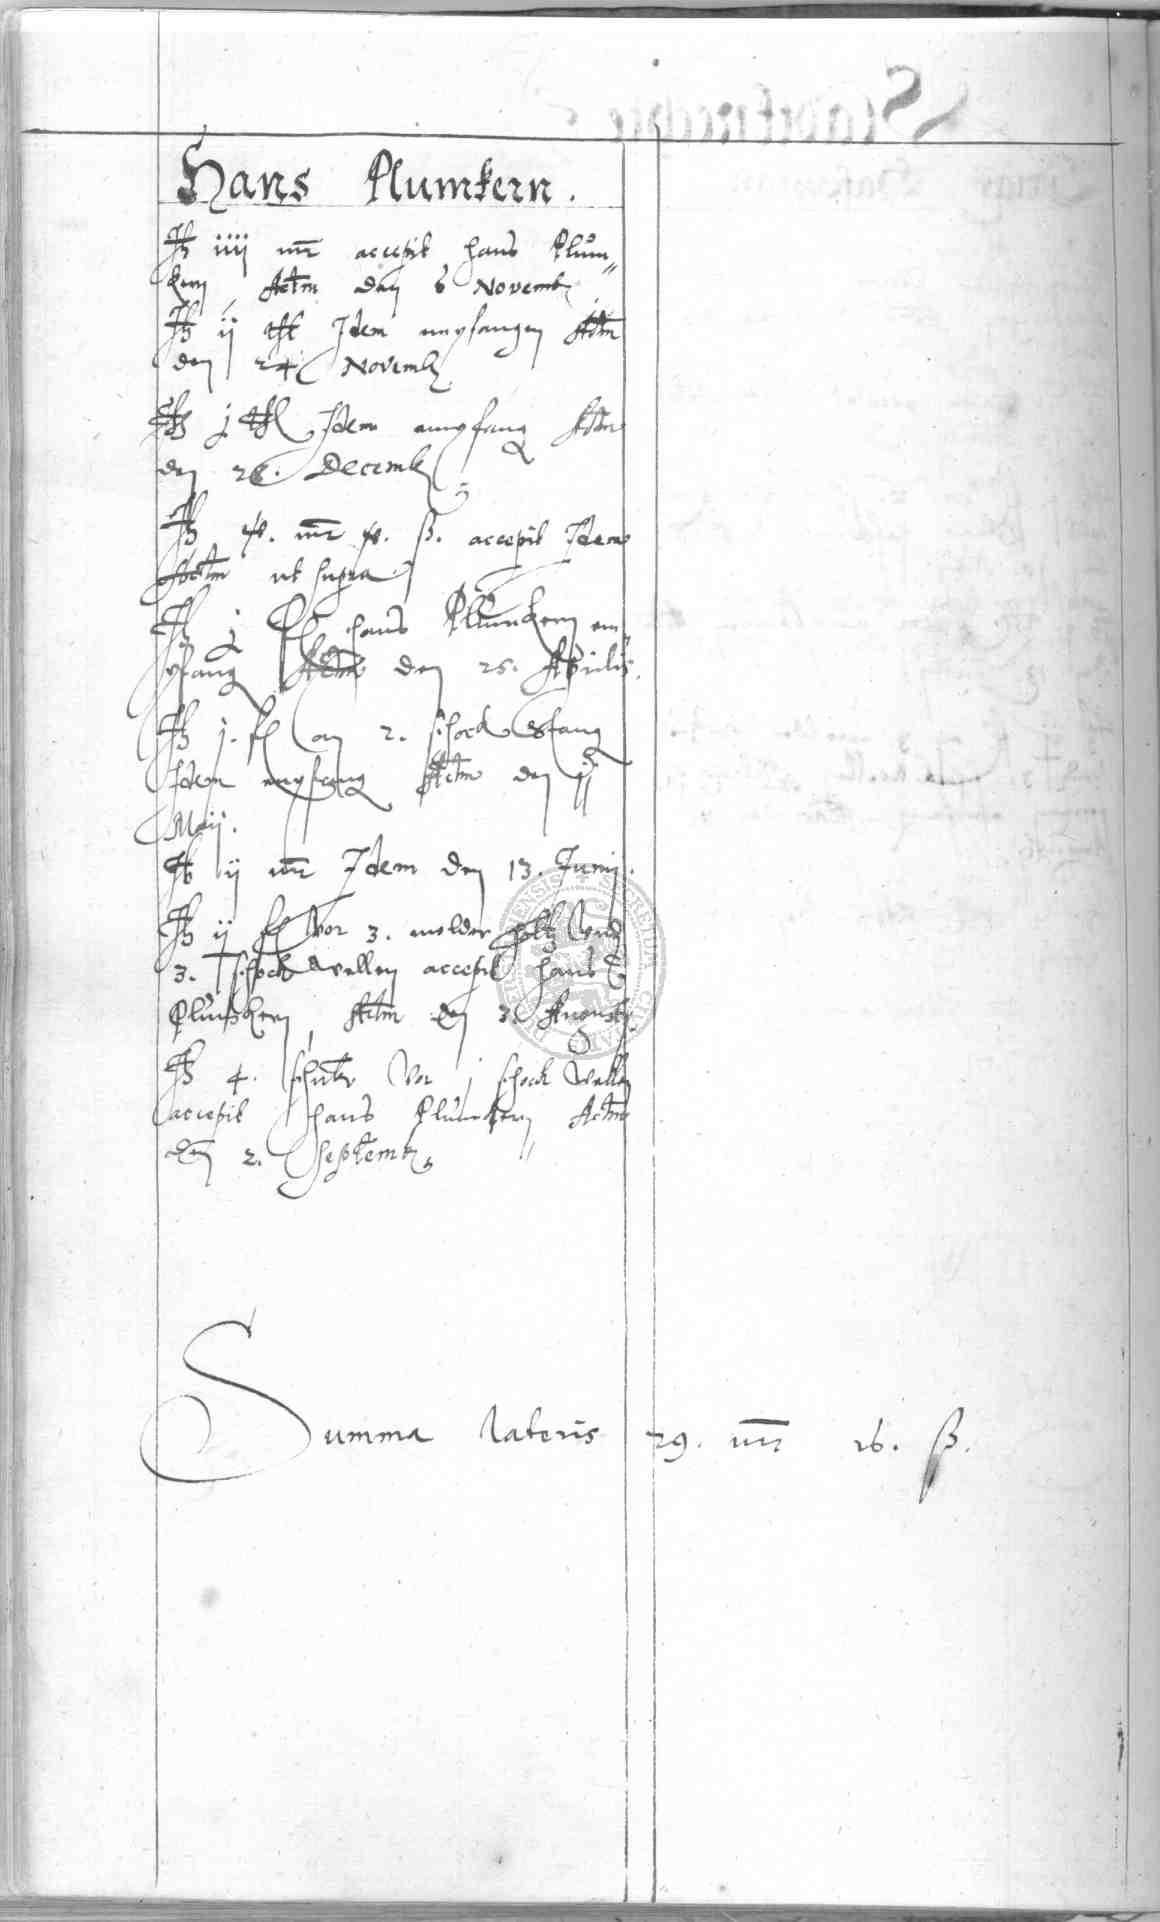 Hans Plumkern.
It iiij mr accepit hans Plum„
kern Actm den 6 Novemb
It ij thl Idem empfangen Actm
den 24 Novemb
It j thl Idem empfang Actm
den 28. Decemb
It 4. mr 4. ß. accepit Idem
Actm ut supra
It j hans Plumkern em„
pfang Actm den 25. Aprilis.
It j. fl an 2. schock
Idem empfang Actm den
Maij.
It ij mr Idem den 13. Junij.
It ij fl vor 3. molder holtz vnd
3. schock wellen accepit hans
Plumkern Actm den 3. Augusti.
It 4. vor j schock wellen
accepit hans Plumkern Actm
den 2. Septemb
Summa lateris 29. mr 16. ß.